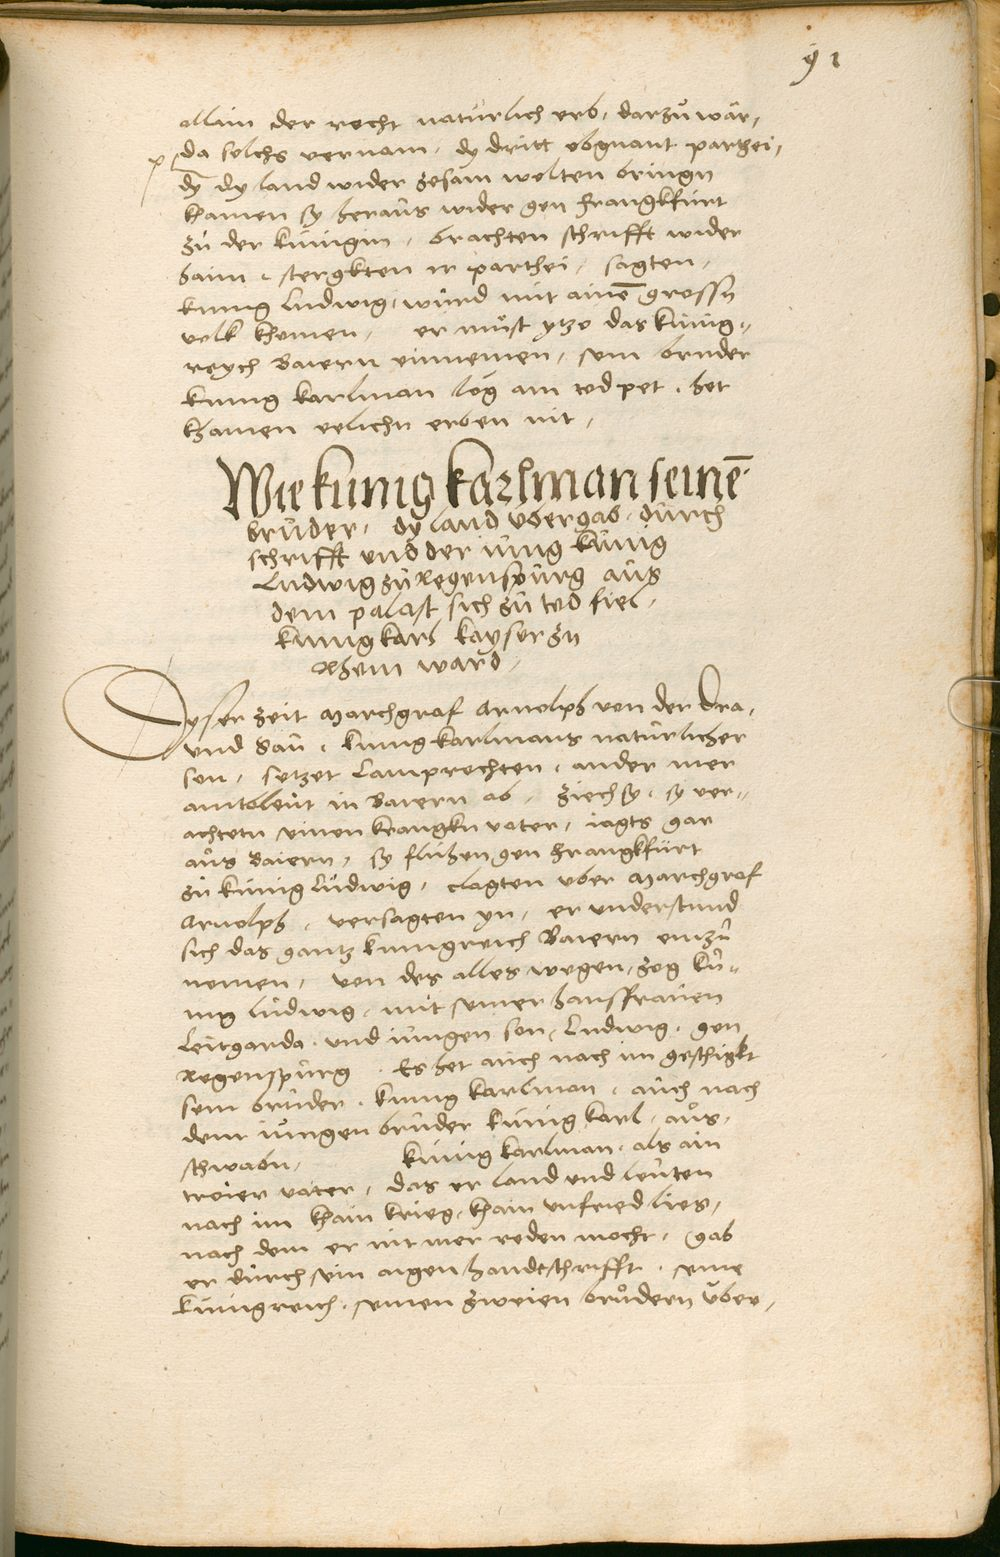 91
allain der recht natürlich erb, darzů wär,
da solchs vernam, dy dritt obgnant parthei,
dy dy land wider zesam wolten bringn
khamen sy heraus wider gen Frangkfurt
zů der künigin, brachten schrifft wider
haim, stergkten ir parthei, sagten,
künig Ludwig, würd mit ainē grossn
volk khomen, er müst ytzo das künig=
reych Baiern einnemen, sein bruder
künig Karlman läg am tod pet, het
khainen eelichn erben nit,
Wie künig Karlman seinē
brüder, dy land übergab, durch
schrifft und der iung künig
Ludwig zů Regenspurg aus
dem palast sich zů tod fiel,
künig Karl kayser zu
Rhom ward,
Dyser zeit Marchgraf Arnolph von der Dra,
und Sau, künig Karlmans natürlicher
son, setzet Lamprechten, ander mer
amtsleüt in Baiern ab, ziech sy, sy ver=
achtetn seinen krangkn vater, iagts gar
aus Baiern, sy fluhen gen Frangkfurt
zů künig Ludwig, clagten uber Marchgraf
Arnolph, versagten yn, er understund
sich das gantz künigreich Baiern einzů
nemen, von des alles wegen, zog kü=
nig Ludwig, mit seiner hausfrauen
Leitgarda, und iungen son, Ludwig, gen
Regenspurg. Es het auch nach im geschigkt
sein brüder, künig Karlman, auch nach
dem iungen brüder künig Karl, aus,
schwabn, künig Karlman, als ain
treier vater, das er land und leüten
nach im khain krieg, khain unfried lies,
nach dem er nit mer reden mocht, gab
er durch sein aigen handtschrifft, seine
künigreich, seinen zweien brůdern über,